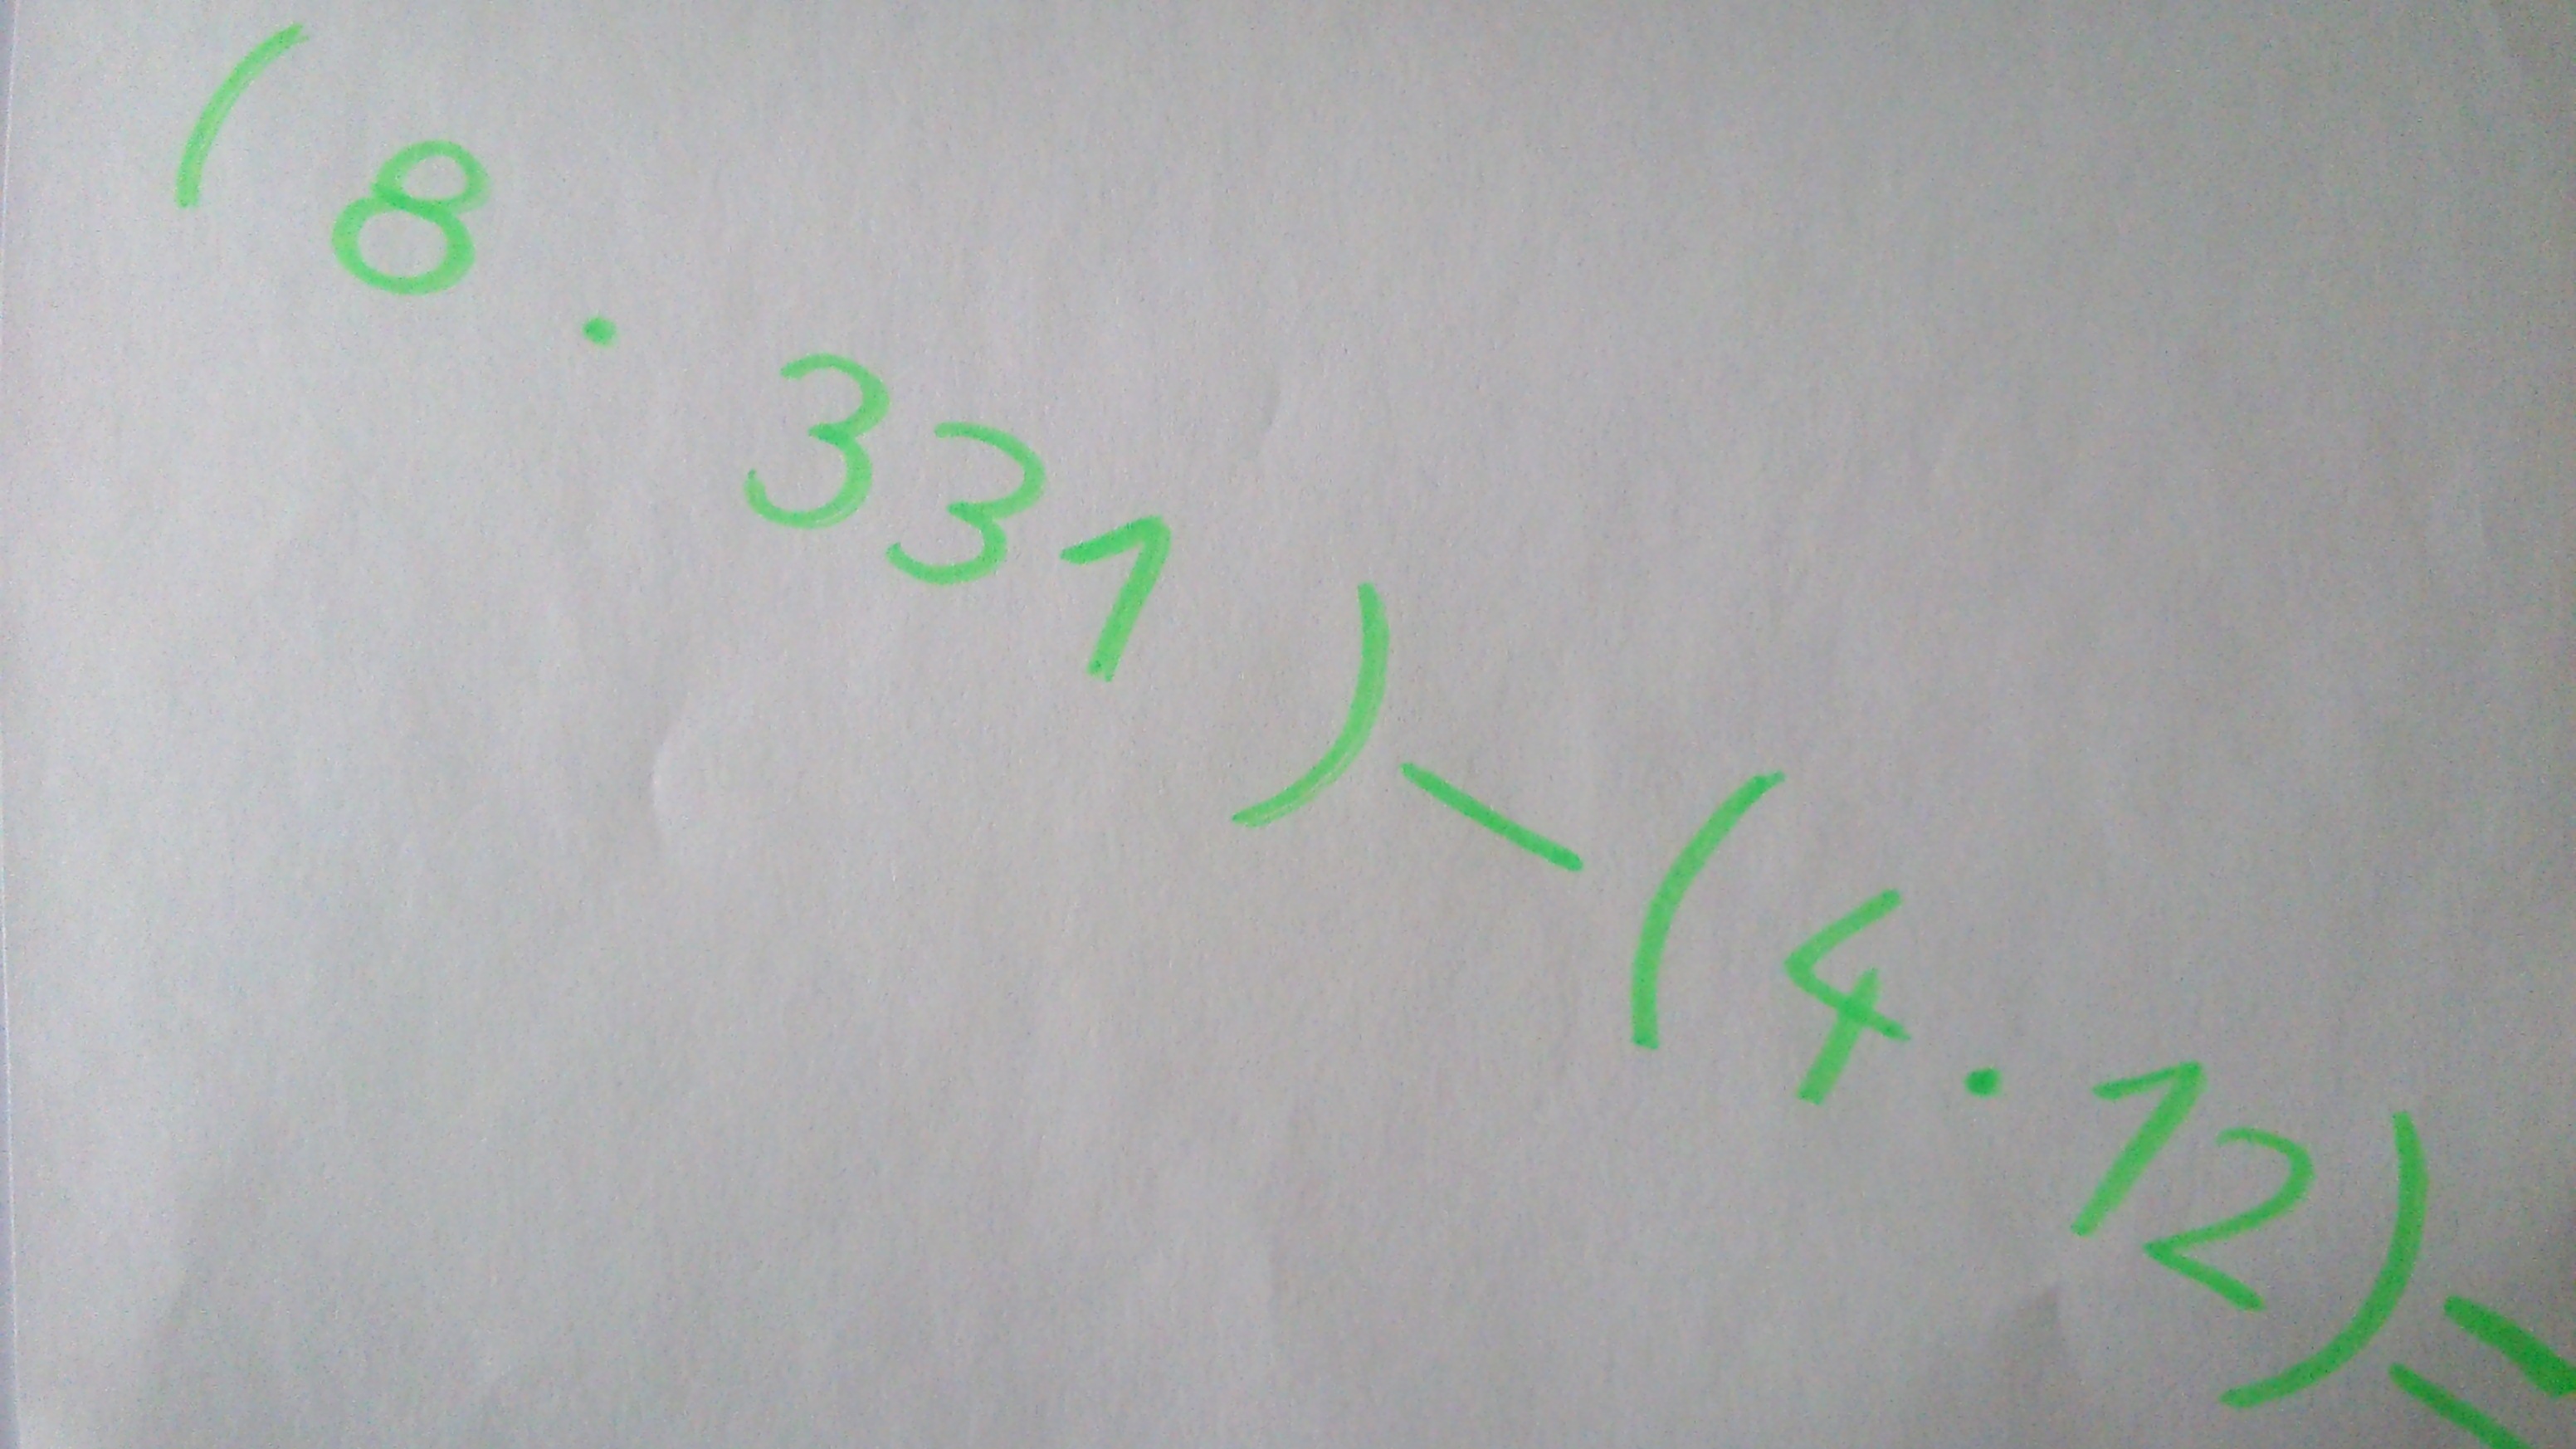 (8 · 331) - (4 · 12) =